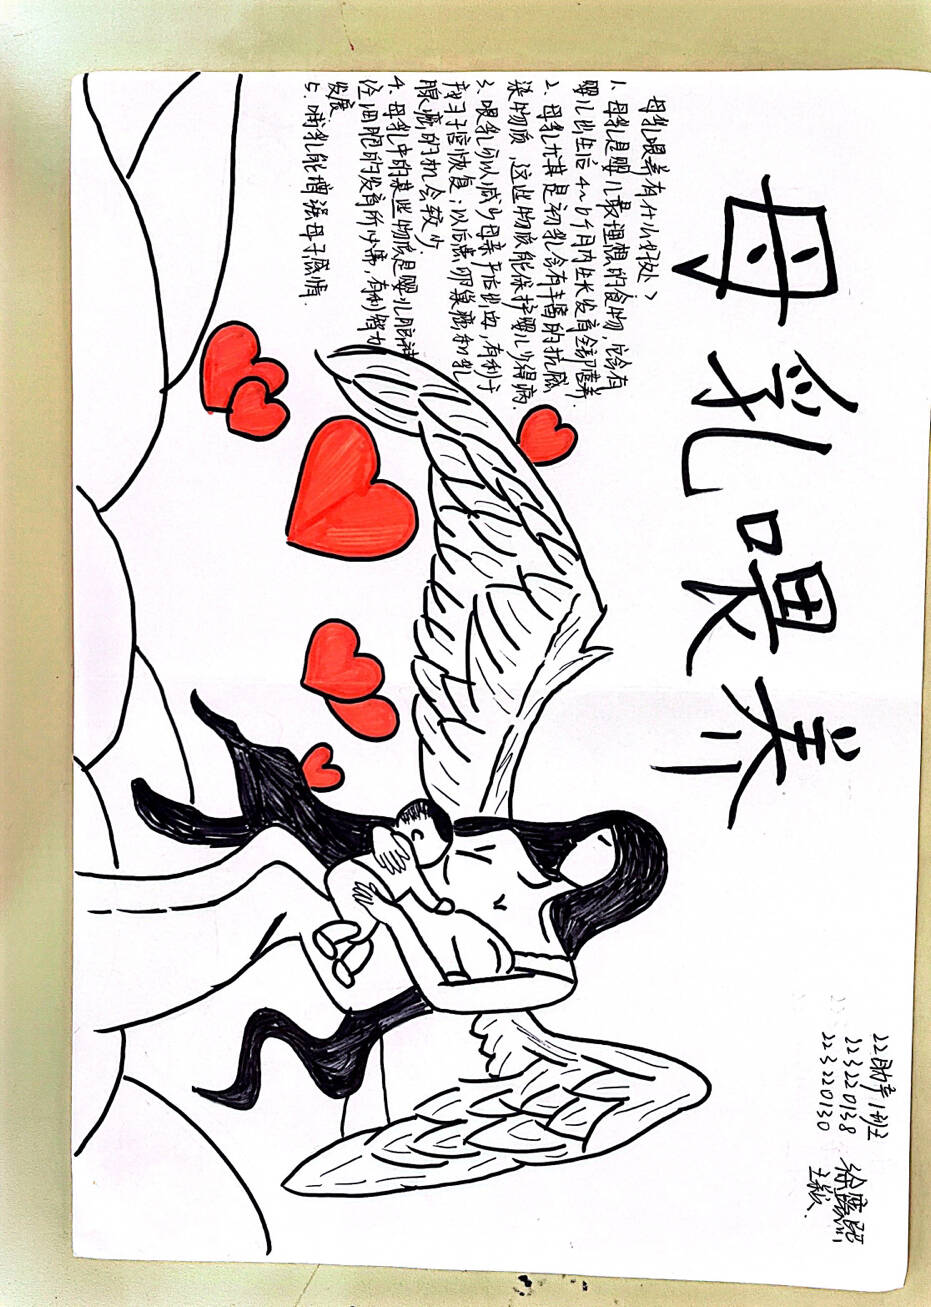 母乳喂养
22助产1班
223220138 徐露
223220130 王
母乳喂养有什么好处>
1. 母乳是婴儿最理想的食物,它含有
婴儿出生后4~6个月内生长发育全部营养.
2. 母乳尤其是初乳含有丰富的抗感
染物质,这些物质能保护婴儿少得病.
3. 喂乳可以减少母亲产后出血,有利于
子宫恢复;以后患卵巢癌和乳
腺癌的机会较少.
4. 母乳中的某些物质是婴儿脑神
经细胞的发育所必需,有利智力
发展.
5. 哺乳能增强母子感情.